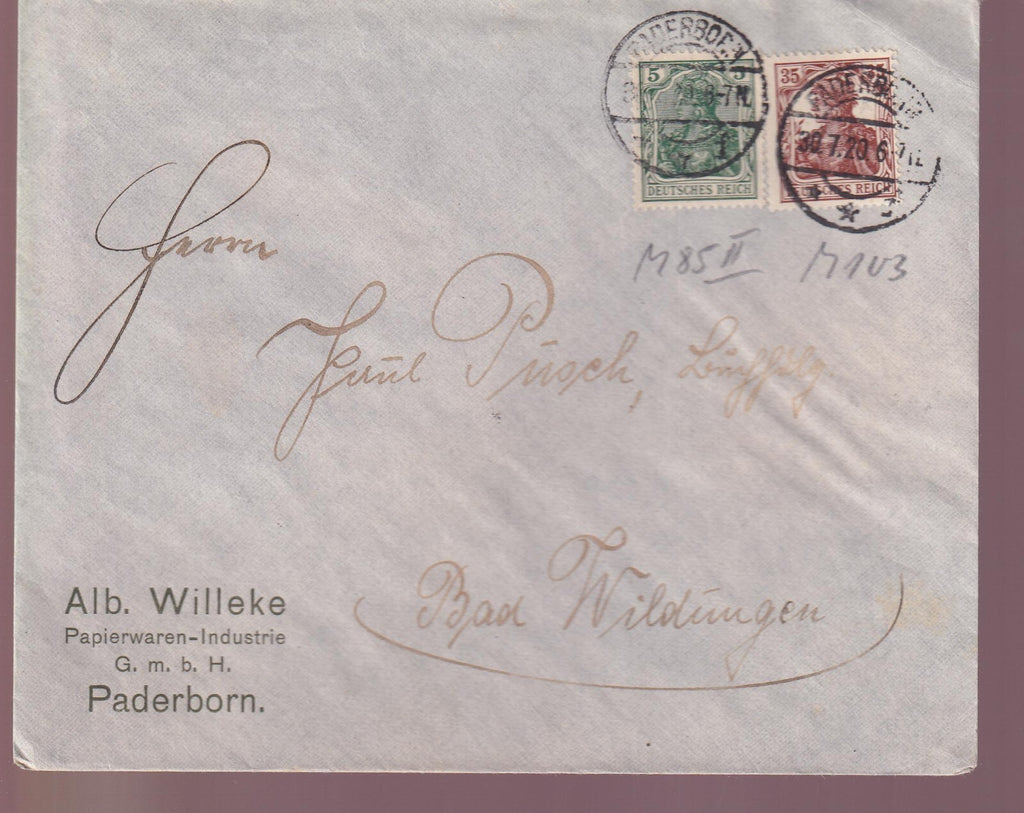 PADERBORN
5 5
35
30.7.20.6-7N.
DEUTSCHES REICH
DEUTSCHES REICH
M85 II M103
Herrn
Paul Pusch,
Bad Wildungen
Alb. Willeke
Papierwaren-Industrie
G. m. b. H.
Paderborn.